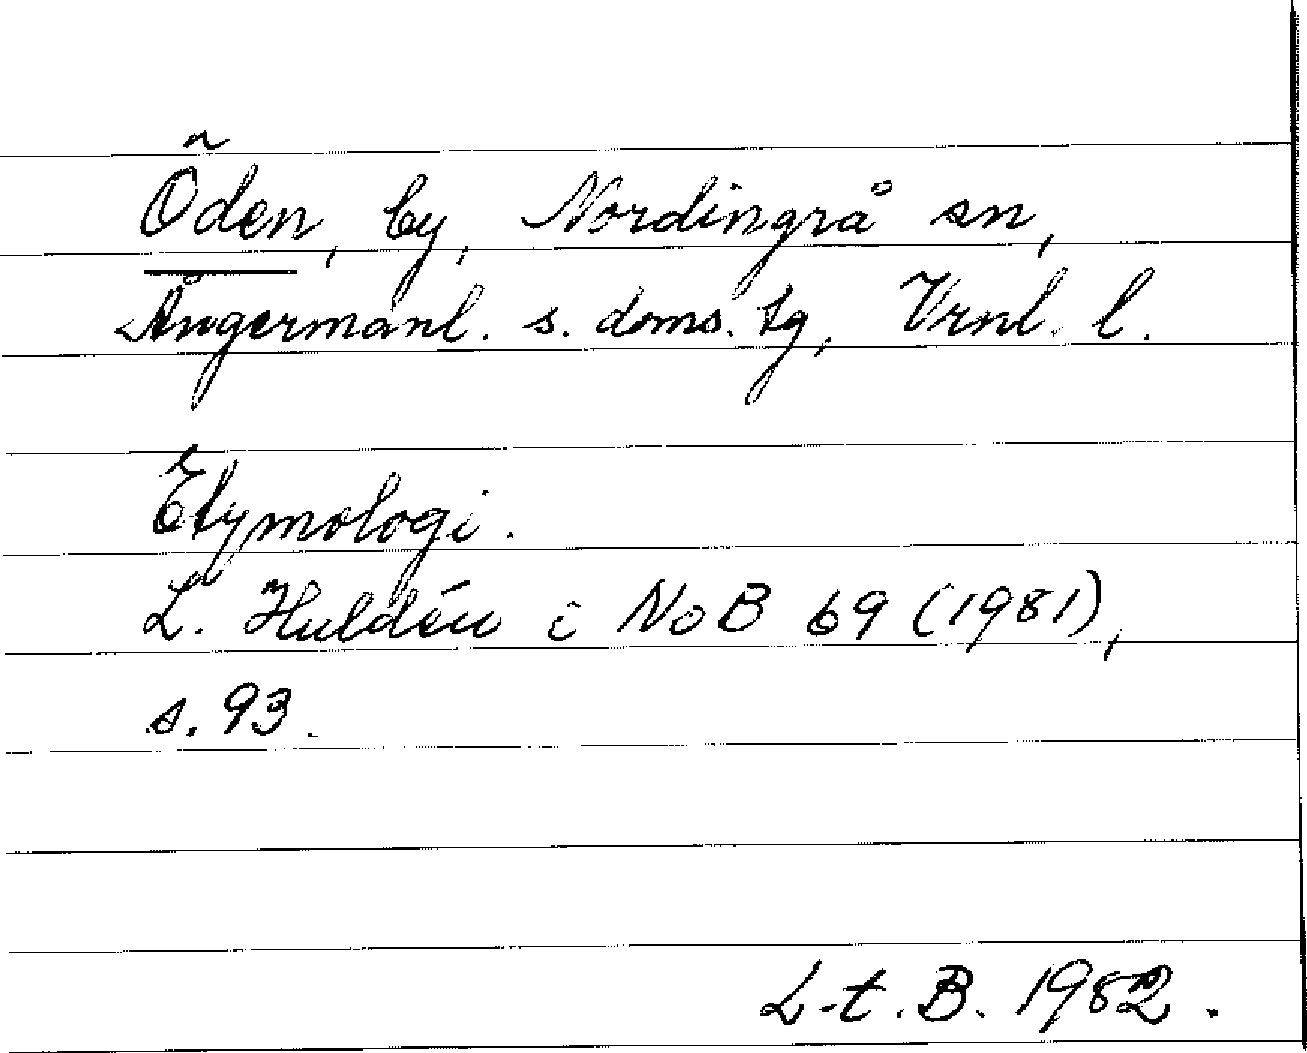 Öden, by, Nordingrå sn,
Ångermanl. s. doms. tg, Vrnl. l.
Etymologi.
L. Huldén i NoB 69 (1981),
s. 93.
L-t. B. 1982.